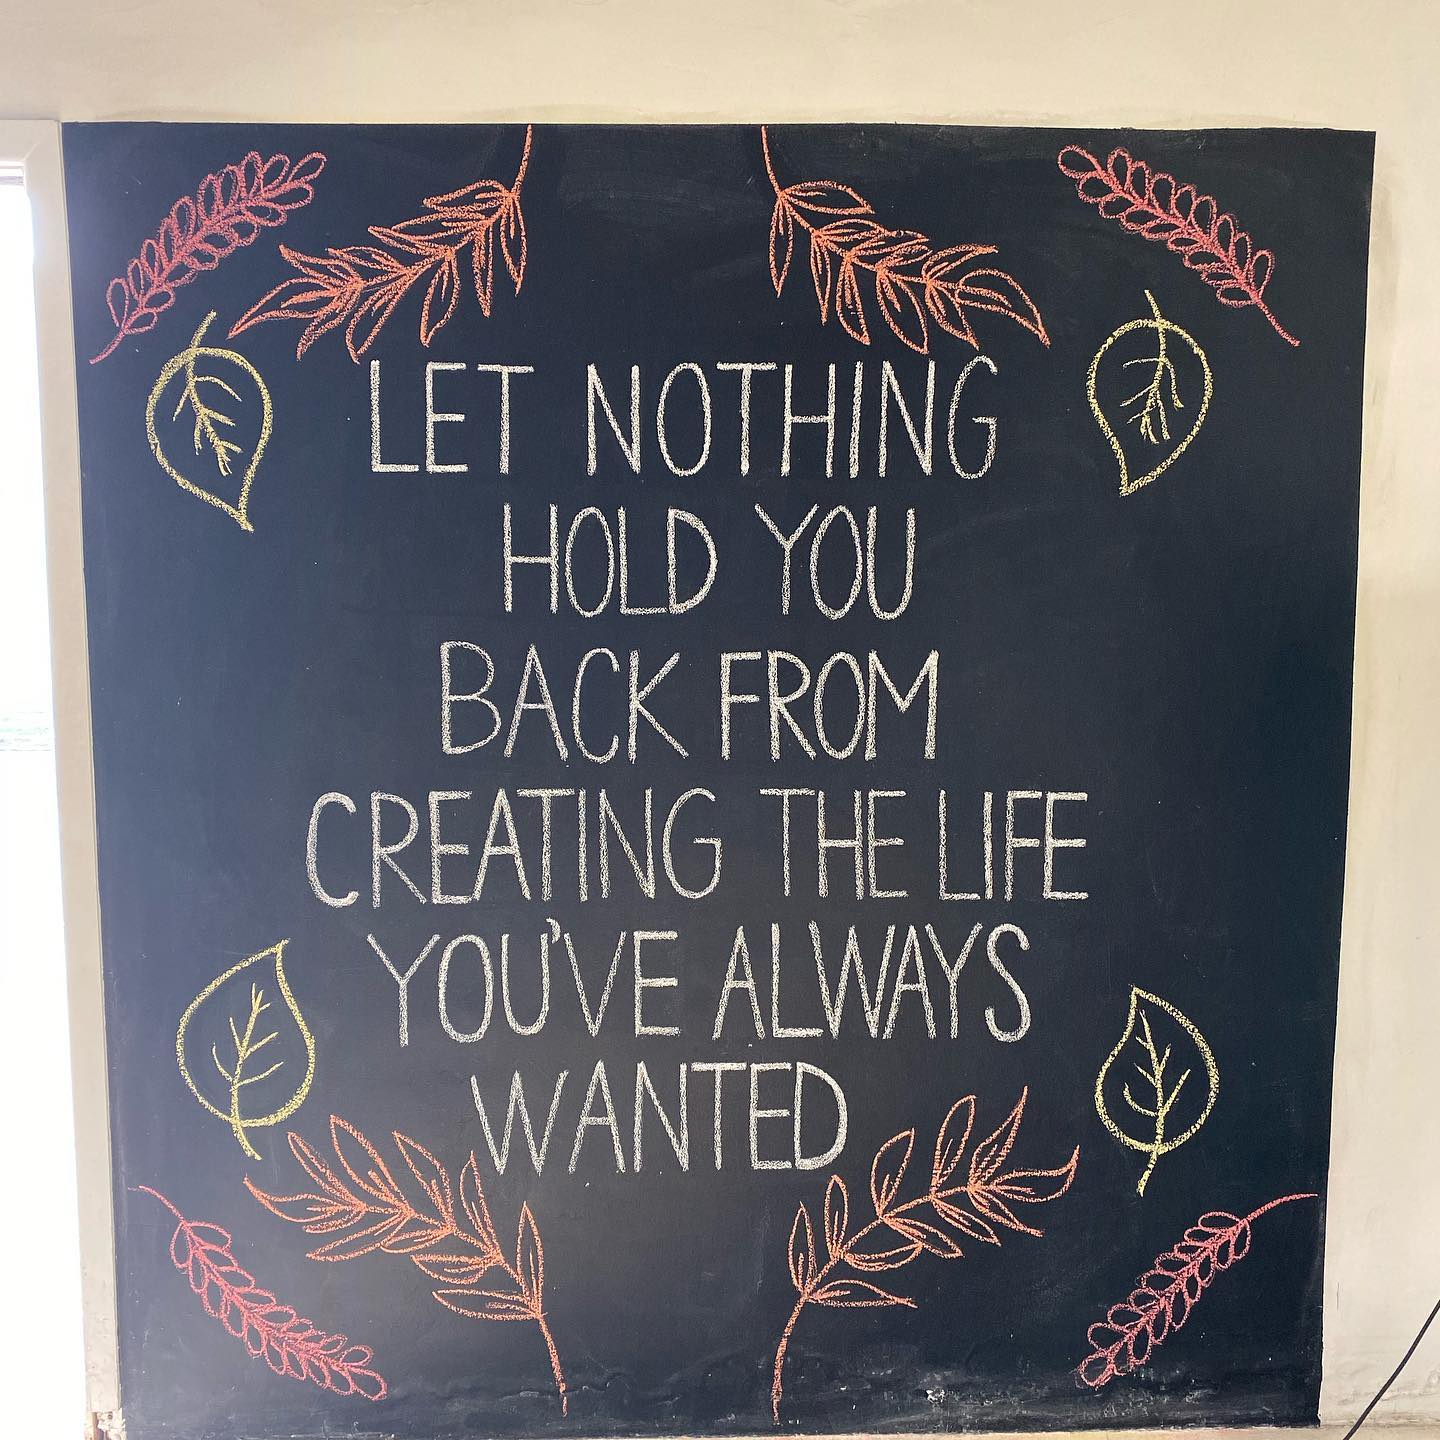 LET NOTHING
HOLD YOU
BACK FROM
CREATING THE LIFE
YOU'VE ALWAYS
WANTED